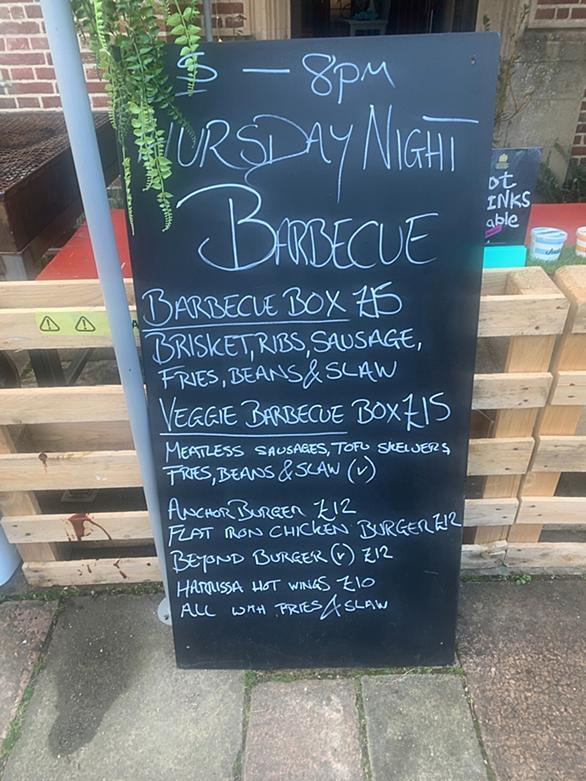 5 — 8pm
THURSDAY NIGHT
BARBECUE
BARBECUE BOX £15
BRISKET, RIBS, SAUSAGE,
FRIES, BEANS & SLAW
VEGGIE BARBECUE BOX £15
MEATLESS SAUSAGES, TOFU SKEWERS
FRIES, BEANS & SLAW (v)
ANCHOR BURGER £12
FLAT IRON CHICKEN BURGER £12
BEYOND BURGER (v) £12
HARRISSA HOT WINGS £10
ALL WITH FRIES & SLAW
ot
INKS
able